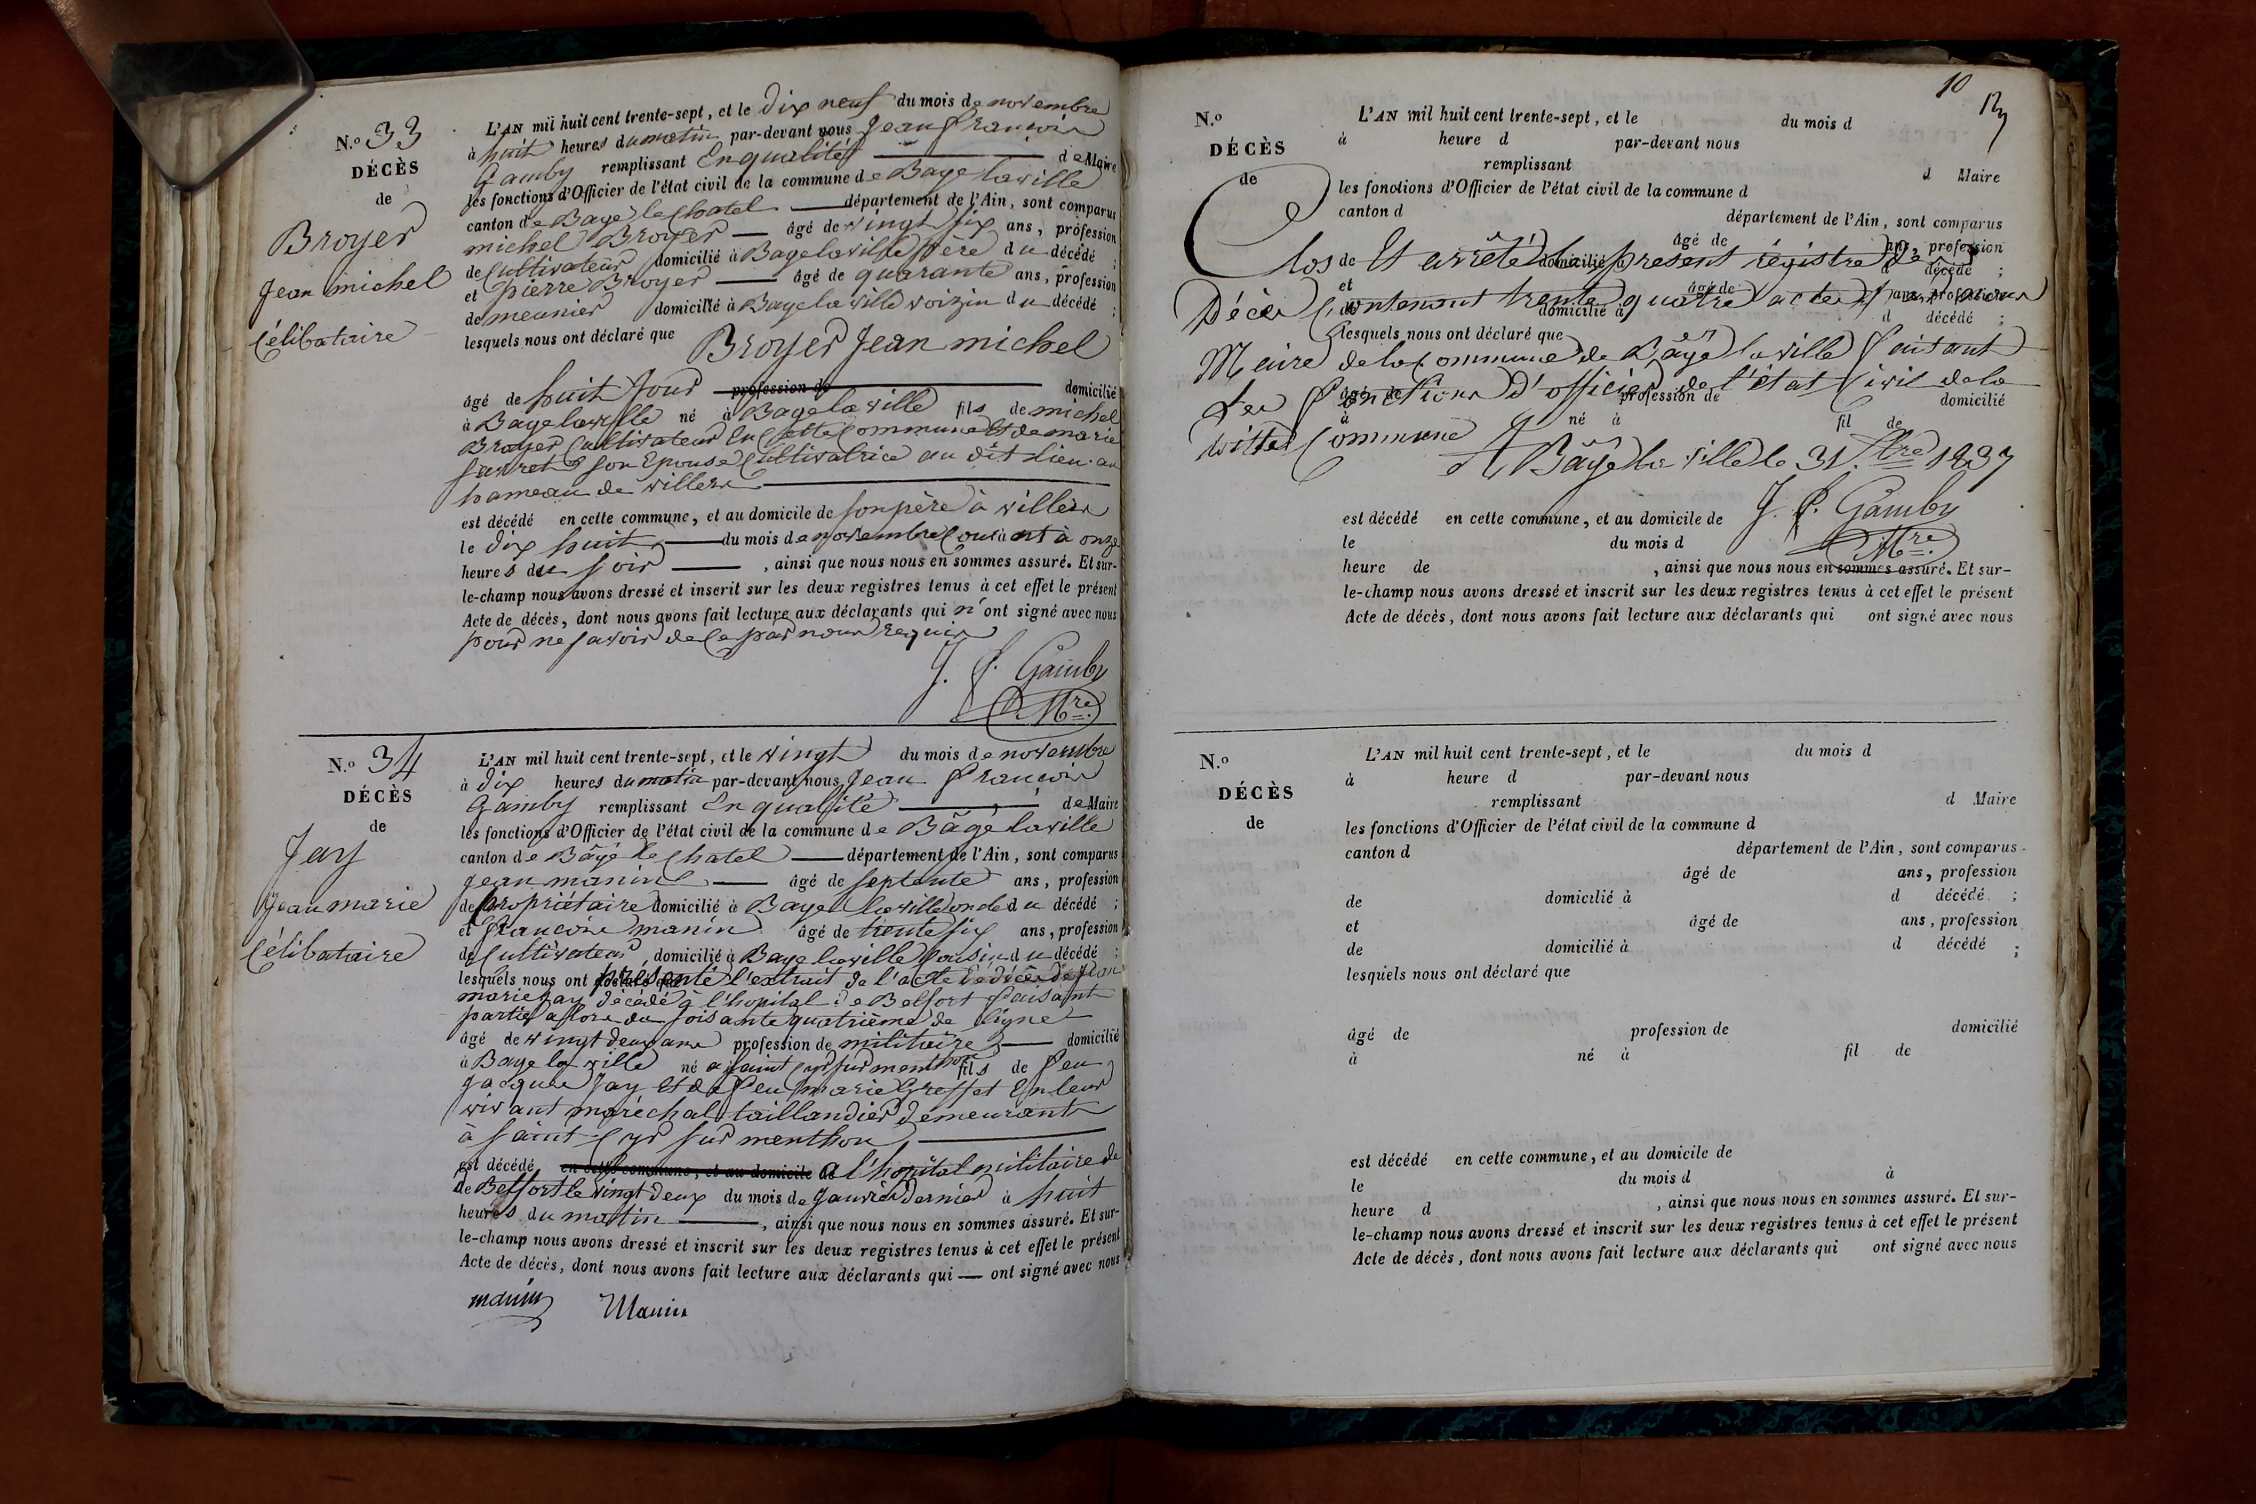 N.o 33
DÉCÈS
de
Broyer
Jean michel
Célibataire
L'AN mil huit cent trente-sept, et le Dix neuf du mois de novembre
à huit heures du matin par-devant nous Jean françois
Gamby remplissant En qualité de Maire
les fonctions d'Officier de l'état civil de la commune de Bagé la ville
canton de Bagé le Chatel département de l'Ain, sont comparus
michel Broyer âgé de vingt six ans, profession
de Cultivateur domicilié à Bagé la ville père du décédé ;
et pierre Broyer âgé de quarante ans, profession
de meunier domicilié à Bagé la ville voizin du décédé ;
lesquels nous ont déclaré que Broyer Jean michel
âgé de huit Jour profession de domicilié
à Bagé la ville né à Bagé la ville fils de michel
Broyer Cultivateur En Cette Commune Et de marie
son Epouse Cultivatrice au dit lieu au
hameau de villers
est décédé en cette commune, et au domicile de son père à villers
le dix huit du mois de novembre Courant à onze
heures du soir , ainsi que nous nous en sommes assuré. Et sur-
le-champ nous avons dressé et inscrit sur les deux registres tenus à cet effet le présent
Acte de décès, dont nous avons fait lecture aux déclarants qui n'ont signé avec nous
pour ne savoir de Ce par nous requis
J. f. Gamby
Mre
N.o 34
DÉCÈS
de
Jay
Jean marie
Célibataire
L'AN mil huit cent trente-sept, et le vingt du mois de novembre
à dix heures du matin par-devant nous Jean françois
Gamby remplissant En qualité de Maire
les fonctions d'Officier de l'état civil de la commune de Bâgé la ville
canton de Bâgé le Chatel département de l'Ain, sont comparus
Jean manin âgé de septente ans, profession
de propriétaire domicilié à Bagé la ville oncle du décédé ;
et françois manin âgé de trente six ans, profession
de Cultivateur domicilié à Bagé la ville Cousin du décédé ;
lesquels nous ont présenté l'extrait de l'acte de décès de Jean
marie Jay décédé à l'hopital de Belfort faisant
partie alors du soisante quatrième de ligne
âgé de vingt deux ans profession de militaire domicilié
à Bagé la ville né à saint Cyr sur menthon fils de feu
Jacques Jay Et de feu marie Greffet En leur
vivant maréchal taillandier demeurant
à saint Cyr sur menthon
est décédé en cette commune, et au domicile de à l'hopital militaire de
de Belfort le vingt deux du mois de Janvier dernier à huit
heures du matin , ainsi que nous nous en sommes assuré. Et sur-
le-champ nous avons dressé et inscrit sur les deux registres tenus à cet effet le présent
Acte de décès, dont nous avons fait lecture aux déclarants qui ont signé avec nous
manin Manin
10
N.o
DÉCÈS
de
L'AN mil huit cent trente-sept, et le du mois d
à heure d par-devant nous
remplissant d Maire
les fonctions d'Officier de l'état civil de la commune d
canton d département de l'Ain, sont comparus
âgé de ans, profession
de domicilié à d décédé ;
Clos Et arrêté le présent régistre de
et âgé de ans, profession
Décès Contenant trente quatre actes par nous
de domicilié à d décédé ;
lesquels nous ont déclaré que
Maire de la Commune de Bâgé la ville faisant
Les fonctions d'officier de l'état Civil de la
âgé de profession de domicilié
à né à fil de
ditte Commune
A Bâgé la ville le 31 Xbre 1837
J. f. Gamby
Mre
est décédé en cette commune, et au domicile de
le du mois d
heure de , ainsi que nous nous en sommes assuré. Et sur-
le-champ nous avons dressé et inscrit sur les deux registres tenus à cet effet le présent
Acte de décès, dont nous avons fait lecture aux déclarants qui ont signé avec nous
N.o
DÉCÈS
de
L'AN mil huit cent trente-sept, et le du mois d
à heure d par-devant nous
remplissant d Maire
les fonctions d'Officier de l'état civil de la commune d
canton d département de l'Ain, sont comparus
âgé de ans, profession
de domicilié à d décédé ;
et âgé de ans, profession
de domicilié à d décédé ;
lesquels nous ont déclaré que
âgé de profession de domicilié
à né à fil de
est décédé en cette commune, et au domicile de
le du mois d à
heure d , ainsi que nous nous en sommes assuré. Et sur-
le-champ nous avons dressé et inscrit sur les deux registres tenus à cet effet le présent
Acte de décès, dont nous avons fait lecture aux déclarants qui ont signé avec nous